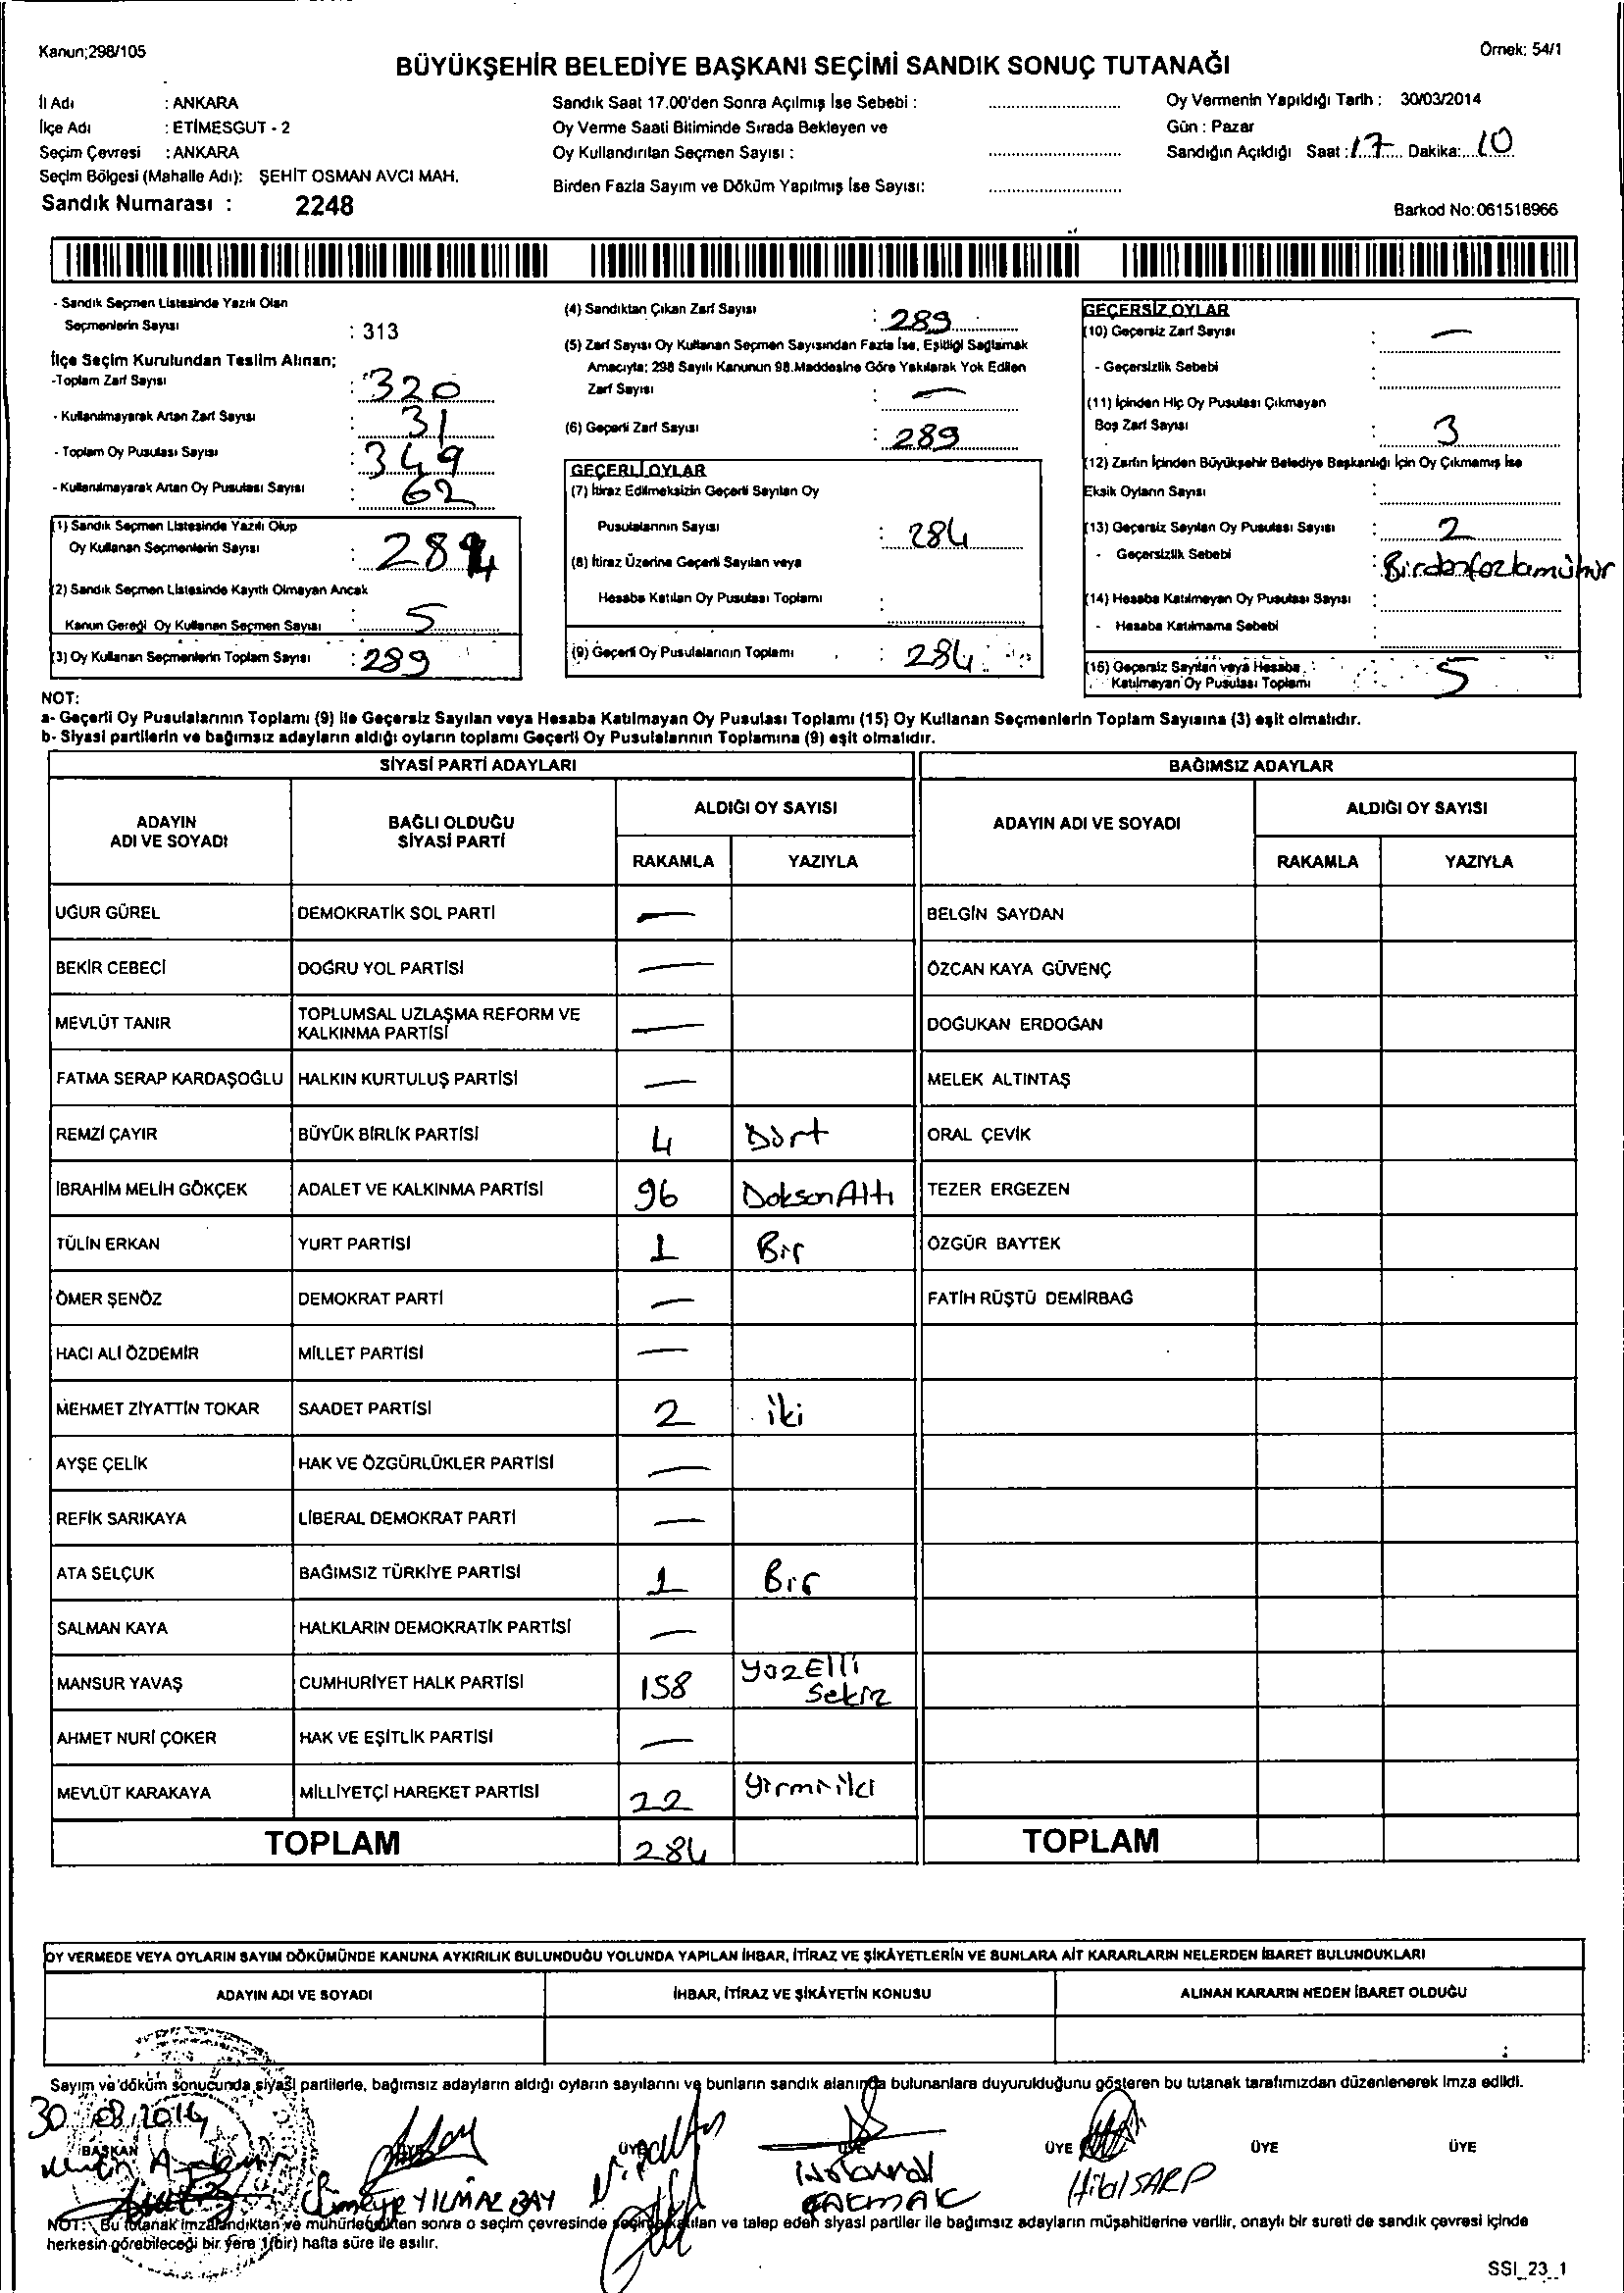 Kanun;298/105
Örnek: 54/1
BÜYÜKŞEHİR BELEDİYE BAŞKANI SEÇİMİ SANDIK SONUÇ TUTANAĞI
İl Adı : ANKARA
İlçe Adı : ETİMESGUT - 2
Seçim Çevresi : ANKARA
Seçim Bölgesi (Mahalle Adı): ŞEHİT OSMAN AVCI MAH.
Sandık Numarası : 2248
Sandık Saat 17.00'den Sonra Açılmış İse Sebebi :
Oy Verme Saati Bitiminde Sırada Bekleyen ve
Oy Kullandırılan Seçmen Sayısı :
Birden Fazla Sayım ve Döküm Yapılmış İse Sayısı:
Oy Vermenin Yapıldığı Tarih : 30/03/2014
Gün : Pazar
Sandığın Açıldığı Saat : 17 Dakika: 10
Barkod No:061518966
- Sandık Seçmen Listesinde Yazılı Olan
Seçmenlerin Sayısı : 313
İlçe Seçim Kurulundan Teslim Alınan;
-Toplam Zarf Sayısı : 320
- Kullanılmayarak Artan Zarf Sayısı : 31
- Toplam Oy Pusulası Sayısı : 349
- Kullanılmayarak Artan Oy Pusulası Sayısı : 62
(1) Sandık Seçmen Listesinde Yazılı Olup
Oy Kullanan Seçmenlerin Sayısı : 284
(2) Sandık Seçmen Listesinde Kayıtlı Olmayan Ancak
Kanun Gereği Oy Kullanan Seçmen Sayısı : 5
(3) Oy Kullanan Seçmenlerin Toplam Sayısı : 289
(4) Sandıktan Çıkan Zarf Sayısı : 289
(5) Zarf Sayısı Oy Kullanan Seçmen Sayısından Fazla İse, Eşitliği Sağlamak
Amacıyla; 298 Sayılı Kanunun 98.Maddesine Göre Yakılarak Yok Edilen
Zarf Sayısı : —
(6) Geçerli Zarf Sayısı : 289
GEÇERLİ OYLAR
(7) İtiraz Edilmeksizin Geçerli Sayılan Oy
Pusulalarının Sayısı : 284
(8) İtiraz Üzerine Geçerli Sayılan veya
Hesaba Katılan Oy Pusulası Toplamı :
(9) Geçerli Oy Pusulalarının Toplamı : 284
GEÇERSİZ OYLAR
(10) Geçersiz Zarf Sayısı : —
- Geçersizlik Sebebi :
(11) İçinden Hiç Oy Pusulası Çıkmayan
Boş Zarf Sayısı : 3
(12) Zarfın İçinden Büyükşehir Belediye Başkanlığı İçin Oy Çıkmamış İse
Eksik Oyların Sayısı :
(13) Geçersiz Sayılan Oy Pusulası Sayısı : 2
- Geçersizlik Sebebi : Birden fazla mühür
(14) Hesaba Katılmayan Oy Pusulası Sayısı :
- Hesaba Katılmama Sebebi :
(15) Geçersiz Sayılan veya Hesaba :
Katılmayan Oy Pusulası Toplamı 5
NOT:
a- Geçerli Oy Pusulalarının Toplamı (9) ile Geçersiz Sayılan veya Hesaba Katılmayan Oy Pusulası Toplamı (15) Oy Kullanan Seçmenlerin Toplam Sayısına (3) eşit olmalıdır.
b- Siyasi partilerin ve bağımsız adayların aldığı oyların toplamı Geçerli Oy Pusulalarının Toplamına (9) eşit olmalıdır.
SİYASİ PARTİ ADAYLARI
BAĞIMSIZ ADAYLAR
ADAYIN
ADI VE SOYADI
BAĞLI OLDUĞU
SİYASİ PARTİ
ALDIĞI OY SAYISI
RAKAMLA YAZIYLA
ADAYIN ADI VE SOYADI
ALDIĞI OY SAYISI
RAKAMLA YAZIYLA
UĞUR GÜREL DEMOKRATİK SOL PARTİ — BELGİN SAYDAN
BEKİR CEBECİ DOĞRU YOL PARTİSİ — ÖZCAN KAYA GÜVENÇ
MEVLÜT TANIR TOPLUMSAL UZLAŞMA REFORM VE
KALKINMA PARTİSİ — DOĞUKAN ERDOĞAN
FATMA SERAP KARDAŞOĞLU HALKIN KURTULUŞ PARTİSİ — MELEK ALTINTAŞ
REMZİ ÇAYIR BÜYÜK BİRLİK PARTİSİ 4 Dört ORAL ÇEVİK
İBRAHİM MELİH GÖKÇEK ADALET VE KALKINMA PARTİSİ 96 Doksan Altı TEZER ERGEZEN
TÜLİN ERKAN YURT PARTİSİ 1 Bir ÖZGÜR BAYTEK
ÖMER ŞENÖZ DEMOKRAT PARTİ — FATİH RÜŞTÜ DEMİRBAĞ
HACI ALİ ÖZDEMİR MİLLET PARTİSİ —
MEHMET ZİYATTİN TOKAR SAADET PARTİSİ 2 iki
AYŞE ÇELİK HAK VE ÖZGÜRLÜKLER PARTİSİ —
REFİK SARIKAYA LİBERAL DEMOKRAT PARTİ —
ATA SELÇUK BAĞIMSIZ TÜRKİYE PARTİSİ 1 Bir
SALMAN KAYA HALKLARIN DEMOKRATİK PARTİSİ —
MANSUR YAVAŞ CUMHURİYET HALK PARTİSİ 158 yüzElli
Sekiz
AHMET NURİ ÇOKER HAK VE EŞİTLİK PARTİSİ —
MEVLÜT KARAKAYA MİLLİYETÇİ HAREKET PARTİSİ 22 yirmi iki
TOPLAM 284 TOPLAM
OY VERMEDE VEYA OYLARIN SAYIM DÖKÜMÜNDE KANUNA AYKIRILIK BULUNDUĞU YOLUNDA YAPILAN İHBAR, İTİRAZ VE ŞİKÂYETLERİN VE BUNLARA AİT KARARLARIN NELERDEN İBARET BULUNDUKLARI
ADAYIN ADI VE SOYADI İHBAR, İTİRAZ VE ŞİKÂYETİN KONUSU ALINAN KARARIN NEDEN İBARET OLDUĞU
Sayım ve döküm sonucunda siyasi partilerle, bağımsız adayların aldığı oyların sayılarını ve bunların sandık alanında bulunanlara duyurulduğunu gösteren bu tutanak tarafımızdan düzenlenerek imza edildi.
30 03 2014
BAŞKAN ÜYE ÜYE ÜYE ÜYE ÜYE
YILMAZ BAY ÇAKMAK SARP
NOT: Bu tutanak imzalandıktan ve mühürlendikten sonra o seçim çevresinde seçime katılan ve talep eden siyasi partiler ile bağımsız adayların müşahitlerine verilir, onaylı bir sureti de sandık çevresi içinde
herkesin görebileceği bir yere 1(bir) hafta süre ile asılır.
SSI_23_1